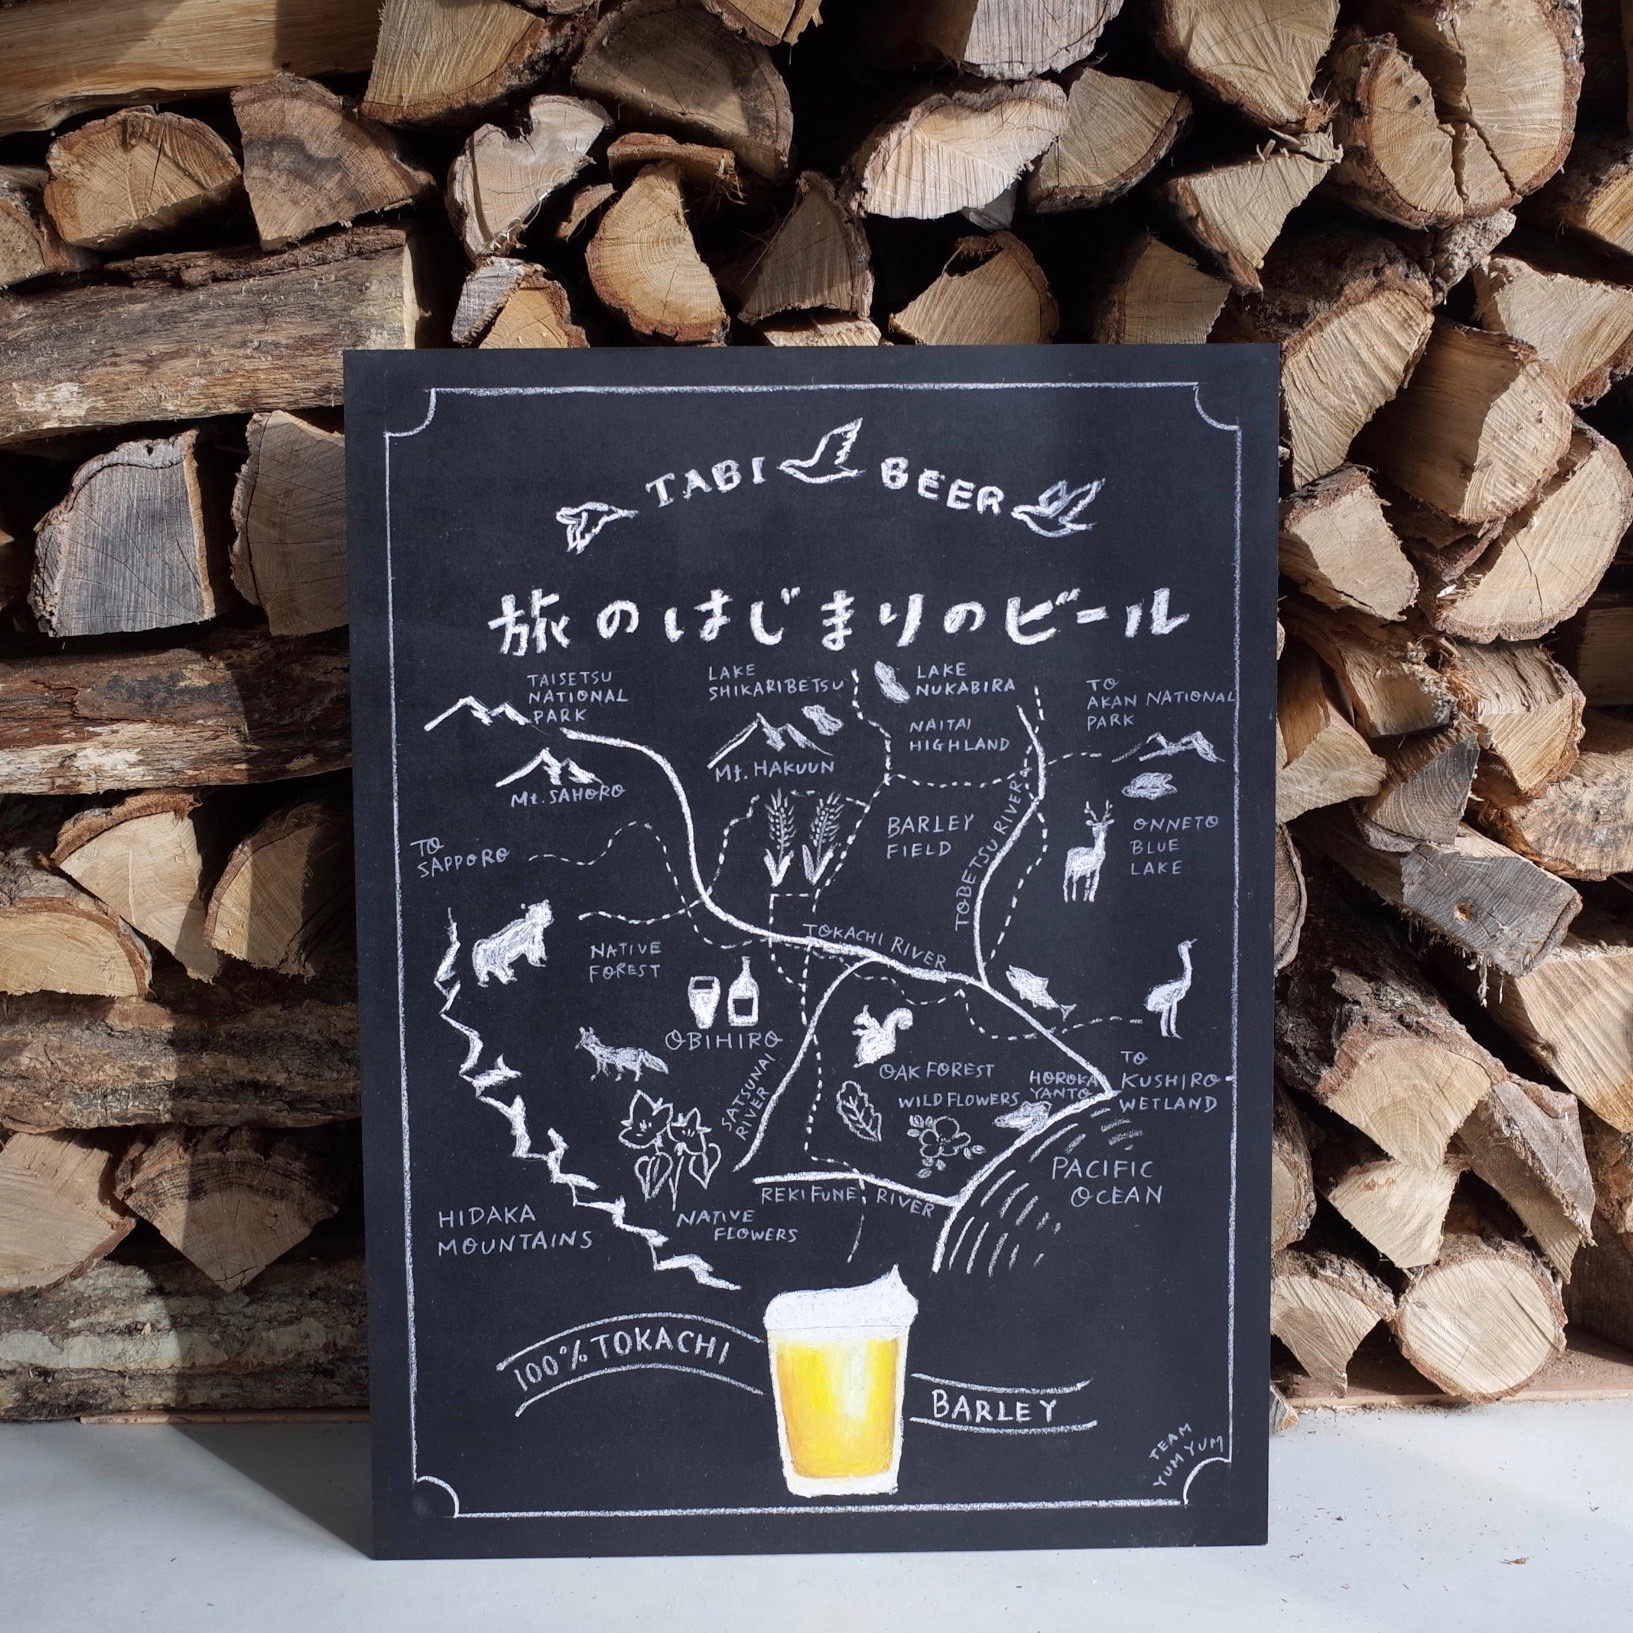 TABI BEER
旅のはじまりのビール
TAISETSU
NATIONAL
PARK
LAKE
SHIKARIBETSU
LAKE
NUKABIRA
TO
AKAN NATIONAL
PARK
NAITAI
HIGHLAND
Mt. HAKUUN
Mt. SAHORO
TO
SAPPORO
BARLEY
FIELD
TOBETSU RIVER
ONNETO
BLUE
LAKE
NATIVE
FOREST
TOKACHI RIVER
OBIHIRO
SATSUNAI
RIVER
OAK FOREST
WILD FLOWERS
HOROKA
YANTO
TO
KUSHIRO
WETLAND
PACIFIC
OCEAN
REKIFUNE RIVER
HIDAKA
MOUNTAINS
NATIVE
FLOWERS
100% TOKACHI
BARLEY
TEAM
YUM YUM